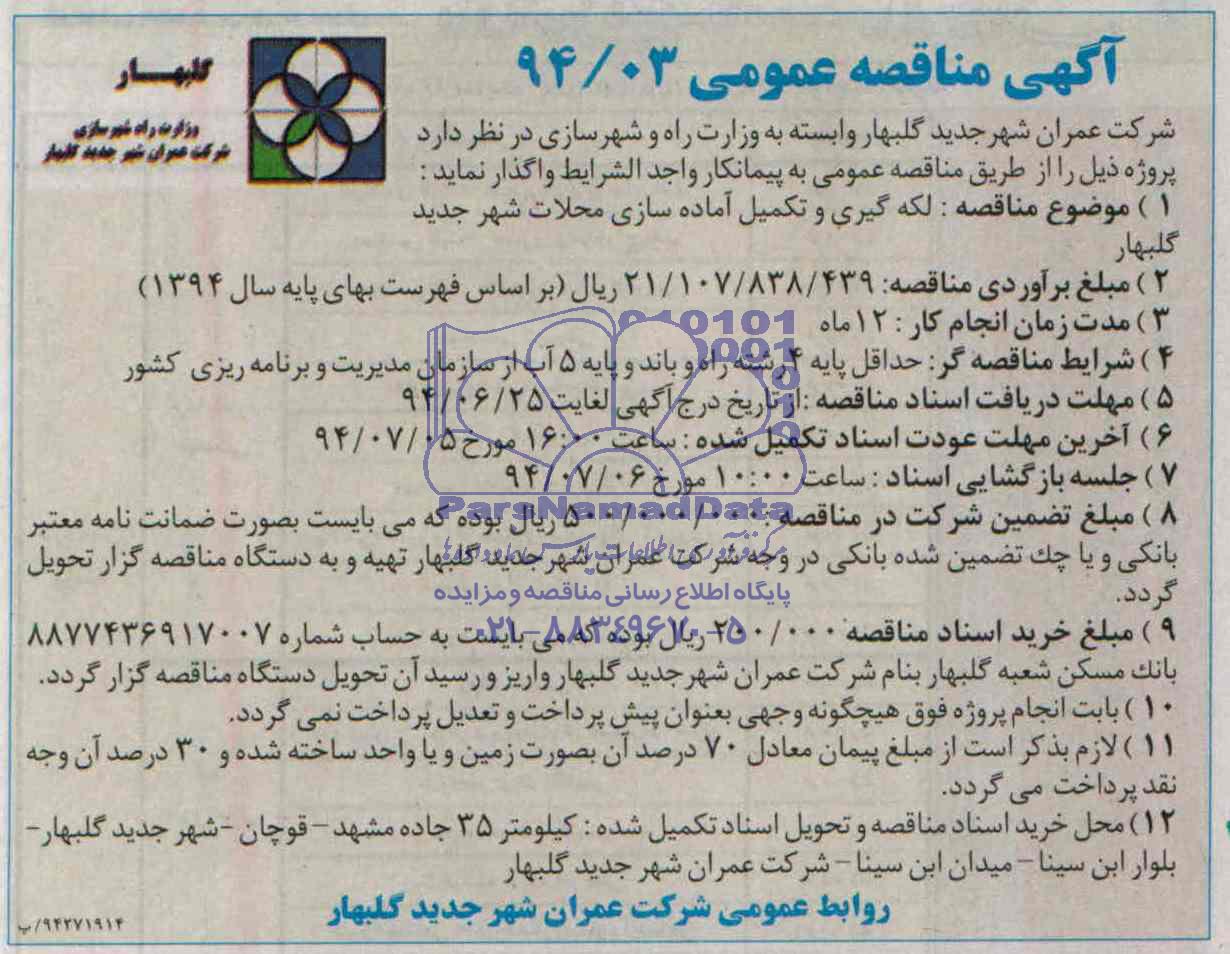 آگهی مناقصه عمومی ۹۴/۰۳
گلبهار
وزارت راه شهرسازی
شرکت عمران شهر جدید گلبهار
شرکت عمران شهر جدید گلبهار وابسته به وزارت راه و شهرسازی در نظر دارد
پروژه ذیل را از طریق مناقصه عمومی به پیمانکار واجد الشرایط واگذار نماید :
۱ ) موضوع مناقصه : لکه گیری و تکمیل آماده سازی محلات شهر جدید
گلبهار
۲ ) مبلغ برآوردی مناقصه: ۲۱/۱۰۷/۸۳۸/۴۳۹ ریال (بر اساس فهرست بهای پایه سال ۱۳۹۴)
۳ ) مدت زمان انجام کار : ۱۲ ماه
۴ ) شرایط مناقصه گر: حداقل پایه ۴ رشته راه و باند و پایه ۵ آب از سازمان مدیریت و برنامه ریزی کشور
۵ ) مهلت دریافت اسناد مناقصه :از تاریخ درج آگهی لغایت ۹۴/۰۶/۲۵
۶ ) آخرین مهلت عودت اسناد تکمیل شده : ساعت ۱۶:۰۰ مورخ ۹۴/۰۷/۰۵
۷ ) جلسه بازگشایی اسناد : ساعت ۱۰:۰۰ مورخ ۹۴/۰۷/۰۶
۸ ) مبلغ تضمین شرکت در مناقصه : ۵۰۰/۰۰۰/۰۰۰ ریال بوده که می بایست بصورت ضمانت نامه معتبر
بانکی و یا چک تضمین شده بانکی در وجه شرکت عمران شهر جدید گلبهار تهیه و به دستگاه مناقصه گزار تحویل
گردد.
۹ ) مبلغ خرید اسناد مناقصه ۲۰۰/۰۰۰ ریال بوده که می بایست به حساب شماره ۸۸۷۷۴۳۶۹۱۷۰۰۷
بانک مسکن شعبه گلبهار بنام شرکت عمران شهر جدید گلبهار واریز و رسید آن تحویل دستگاه مناقصه گزار گردد.
۱۰ ) بابت انجام پروژه فوق هیچگونه وجهی بعنوان پیش پرداخت و تعدیل پرداخت نمی گردد.
۱۱ ) لازم بذکر است از مبلغ پیمان معادل ۷۰ درصد آن بصورت زمین و یا واحد ساخته شده و ۳۰ درصد آن وجه
نقد پرداخت می گردد.
۱۲) محل خرید اسناد مناقصه و تحویل اسناد تکمیل شده : کیلومتر ۳۵ جاده مشهد – قوچان -شهر جدید گلبهار-
بلوار ابن سینا – میدان ابن سینا – شرکت عمران شهر جدید گلبهار
روابط عمومی شرکت عمران شهر جدید گلبهار
۹۴۲۷۱۹۱۴/ب
ParsNamadData
پایگاه اطلاع رسانی مناقصه و مزایده
۰۲۱-۸۸۳۴۹۶۷۰-۵